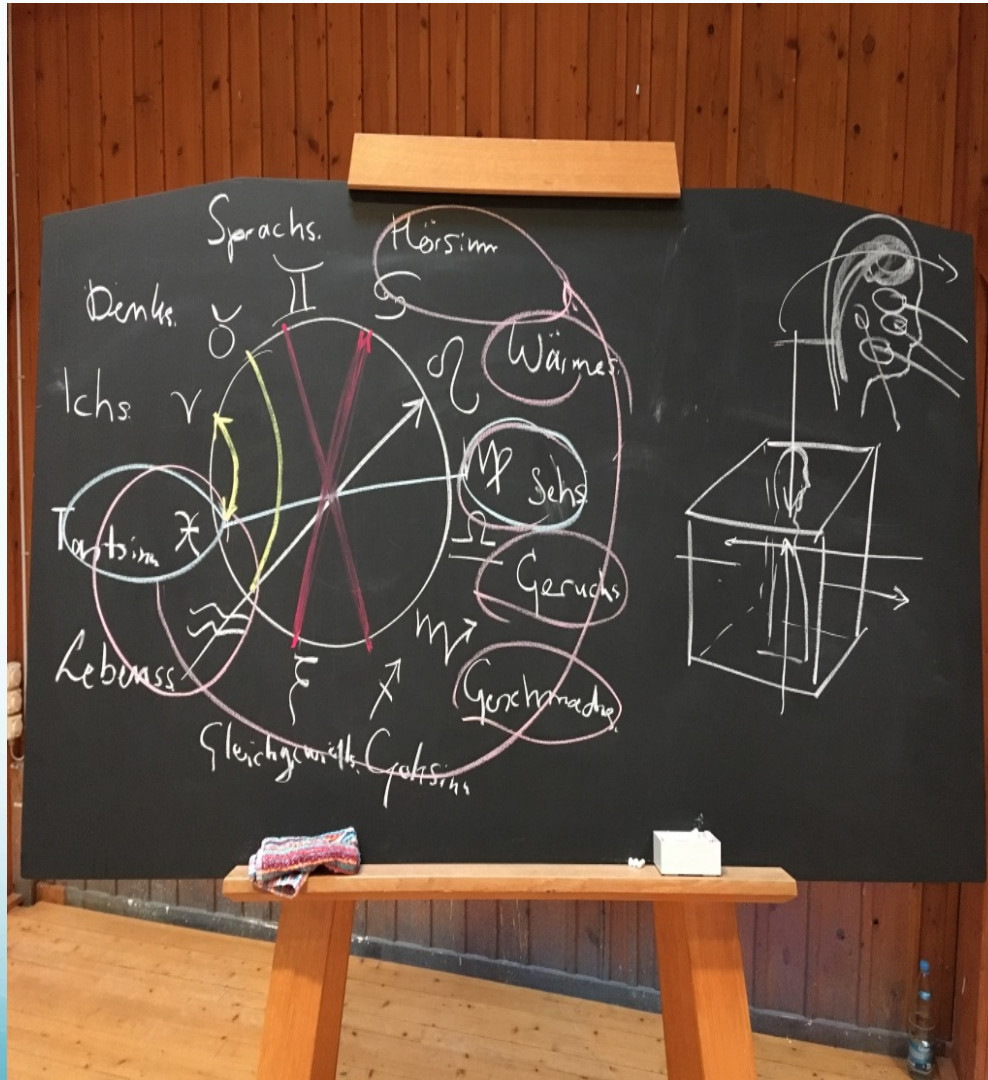 Sprachs.
Hörsinn
♊
♋
Denks.
♉
Wärmes.
♌
Ichs
♈
♍ Sehs.
Tastsinn ♓
♎
Geruchs
♒
♏
Lebenss.
Geschmacks.
♑
♐
Gleichgewichts.
Gehsinn